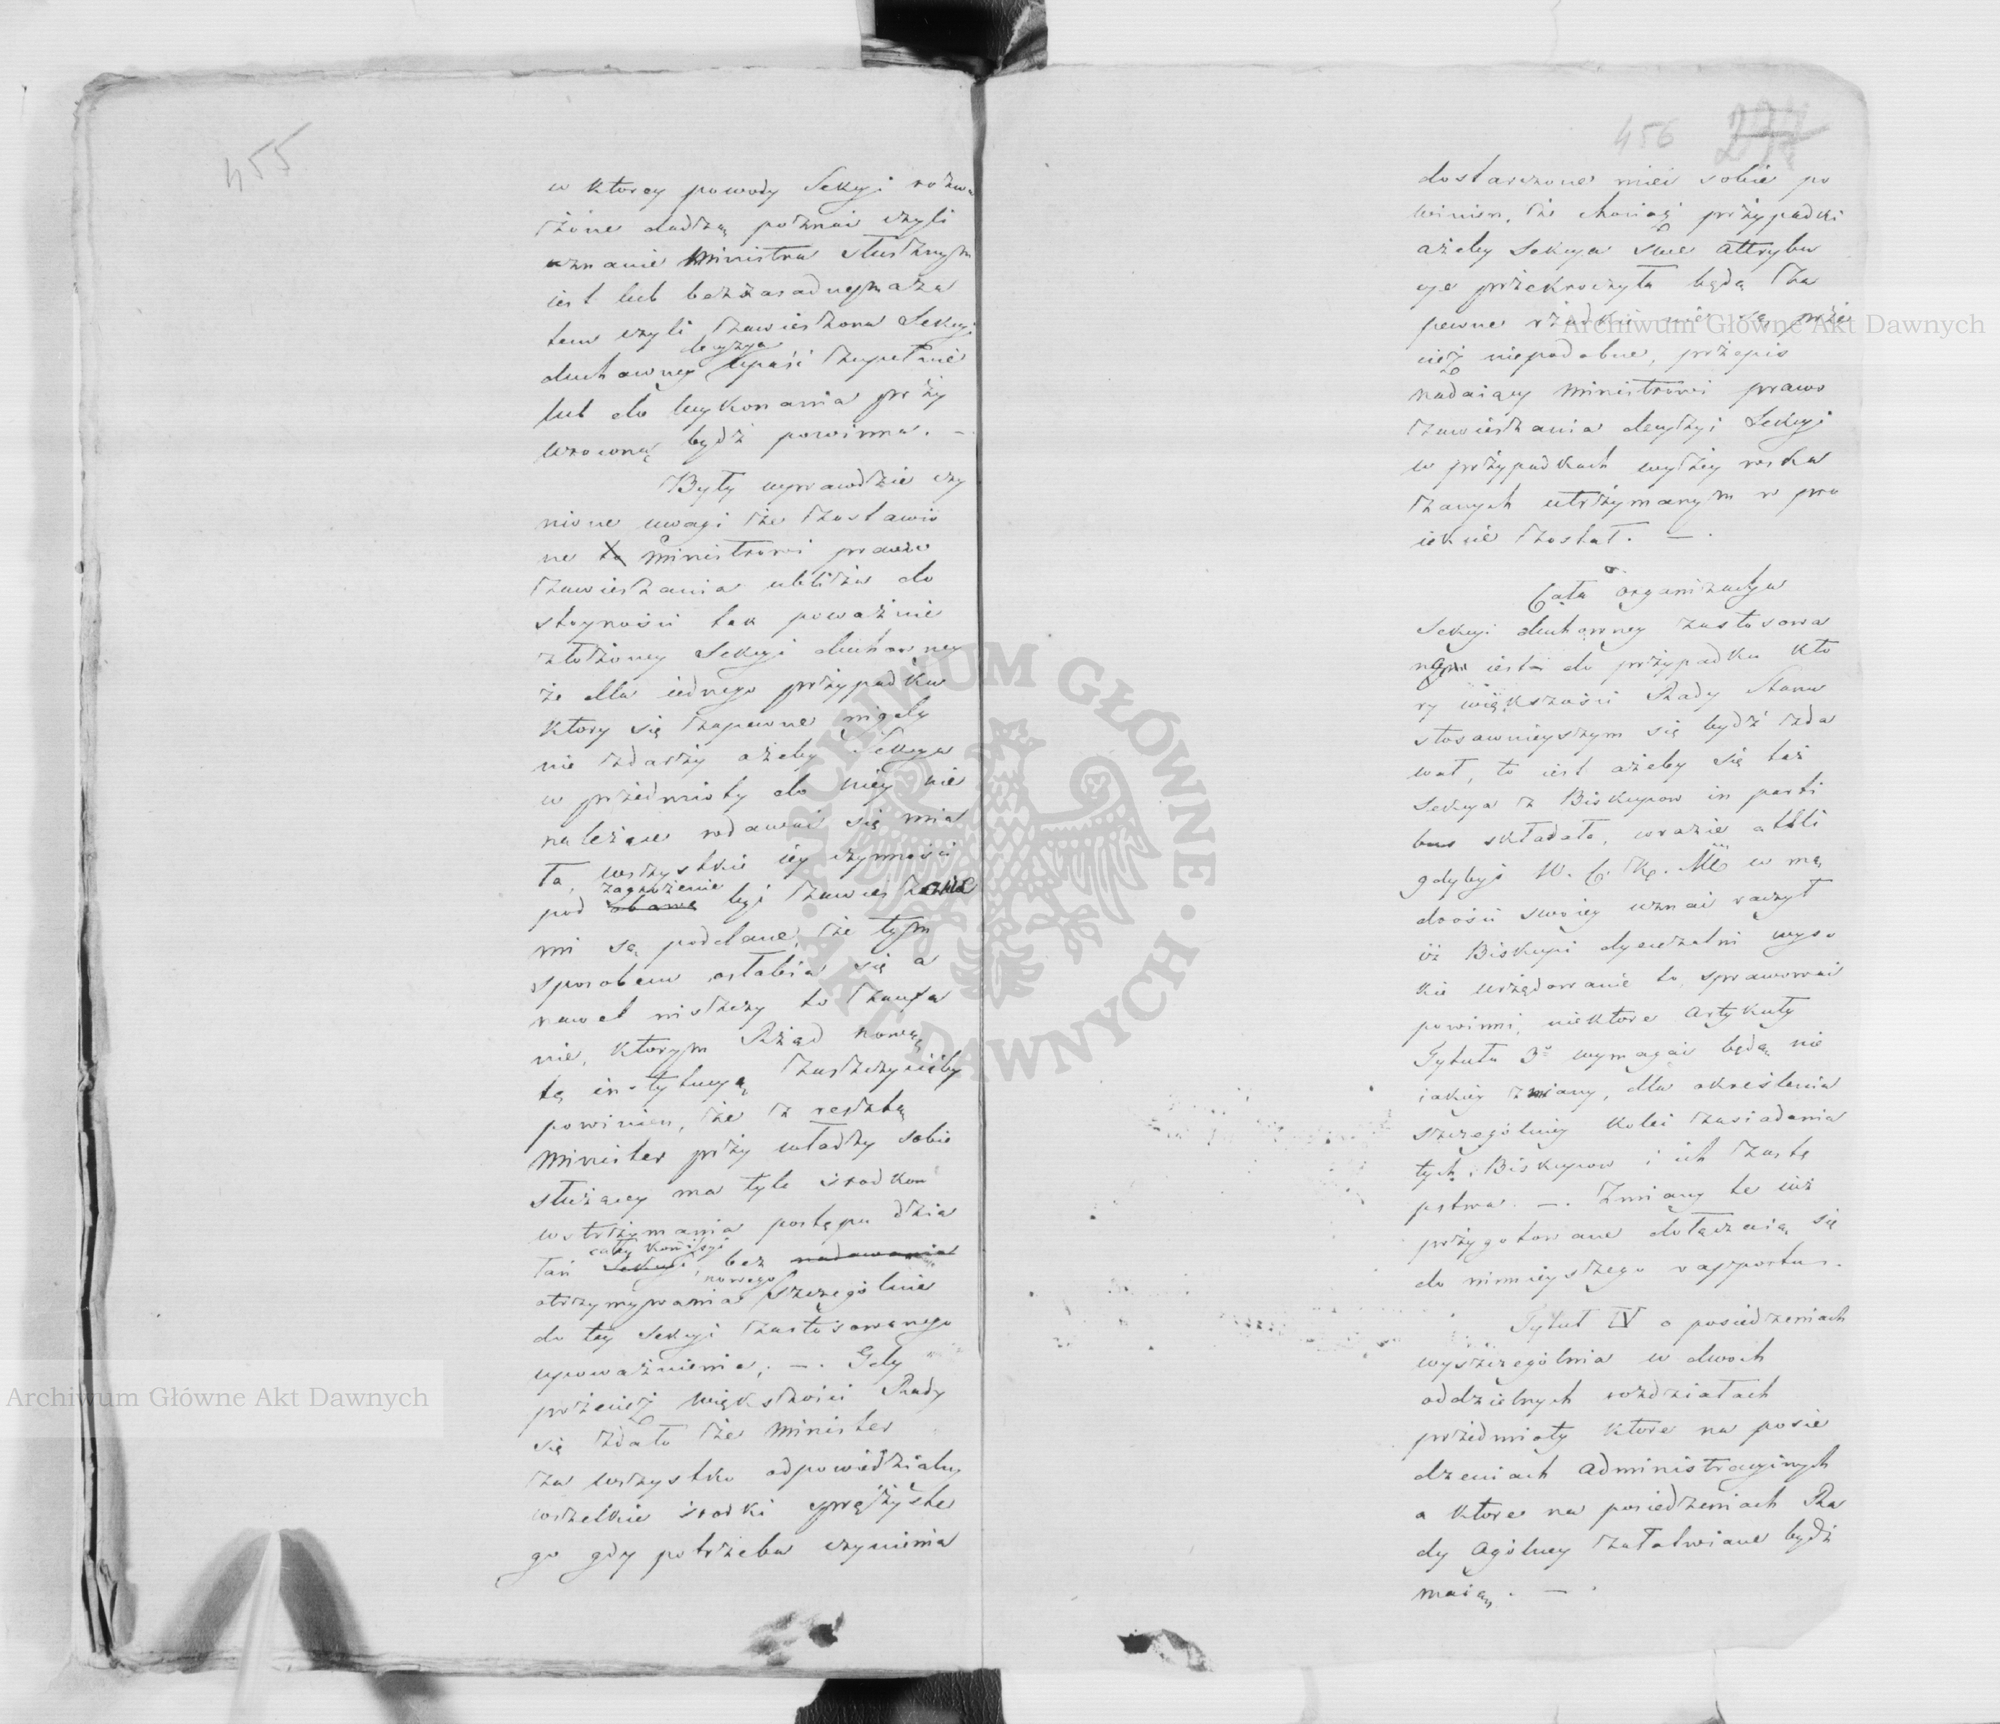 455
w ktorey powody Sekcyi rozwa
żone dadzą poznać czyli
uznanie Ministra słusznym
iest lub bezzasadnym a za
tem czyli zawieszona Sekcyi
decyzya
duchowney upaść zupełnie
lub do wykonania przy
wroconą bydź powinna. —
Były wprawdzie czy
nione uwagi że zostawio
ne Ministrowi prawo
zawieszania ubliża do
stoyności tak poważnie
złożoney Sekcyi duchowney
że dla iednego przypadku
ktory się zapewne nigdy
nie zdarzy ażeby Sekcya
w przedmioty do niey nie
należące wdawać się mia
ła, wszystkie iey czynności
zagrożenie
pod obawę
mi są poddane, że tym
sposobem osłabia się a
nawet niszczy to zaufa
nie, ktorym Rząd nową
tę instytucyą zaszczycićby
powinien, że z resztą
Minister przy władzy sobie
służącey ma tyle srodkow
wstrzymania postępu dzia
całey Kommissyi
łań Sekcyi, bez nadawania
nowego
otrzymywania szczegolnie
do tey Sekcyi zastosowanego
upoważnienia. —. Gdy
przecież większości Rady
się zdało że Minister
za wszystko odpowiedzialny
wszelkie srodki sprężyste
go gdy potrzeba czynienia
456 277
dostarczone mieć sobie po
winien, że chociaż przypadki
ażeby Sekcya swe attrybu
cye przekroczyła będą za
pewne rzadkie nie są prze
cież niepodobne, przepis
nadaiący Ministrowi prawo
zawieszania decyzyi Sekcyi
w przypadkach wyżey wska
zanych utrzymanym w pro
iekcie został. —.
Cała organizacya
Sekcyi duchowney zastosowa
ną iest do przypadku kto
ry większości Rady Stanu
stosownieyszym się bydź zda
wał, to iest ażeby się taż
Sekcya z Biskupow in parti
bus składała, w razie
gdybyś W. C. K. Mć w mą
drości swoiey uznać raczył
iż Biskupi dyecezalni wyso
kie urzędowanie to sprawować
powinni, niektore Artykuły
Tytułu 3º wymagać będą nie
iakiey zmiany, dla określenia
szczegolniey kolei zasiadania
tych Biskupow i ich zastę
pstwa. —. Zmiany te iuż
przygotowane dołączaią się
do ninieyszego rapportu.
Tytuł IV o posiedzeniach
wyszczegolnia w dwoch
oddzielnych rozdziałach
przedmioty ktore na posie
dzeniach administracyinych
a ktore na posiedzeniach Ra
dy Ogolney załatwiane bydź
maią. —.
Archiwum Główne Akt Dawnych
Archiwum Główne Akt Dawnych
ARCHIWUM GŁÓWNE AKT DAWNYCH